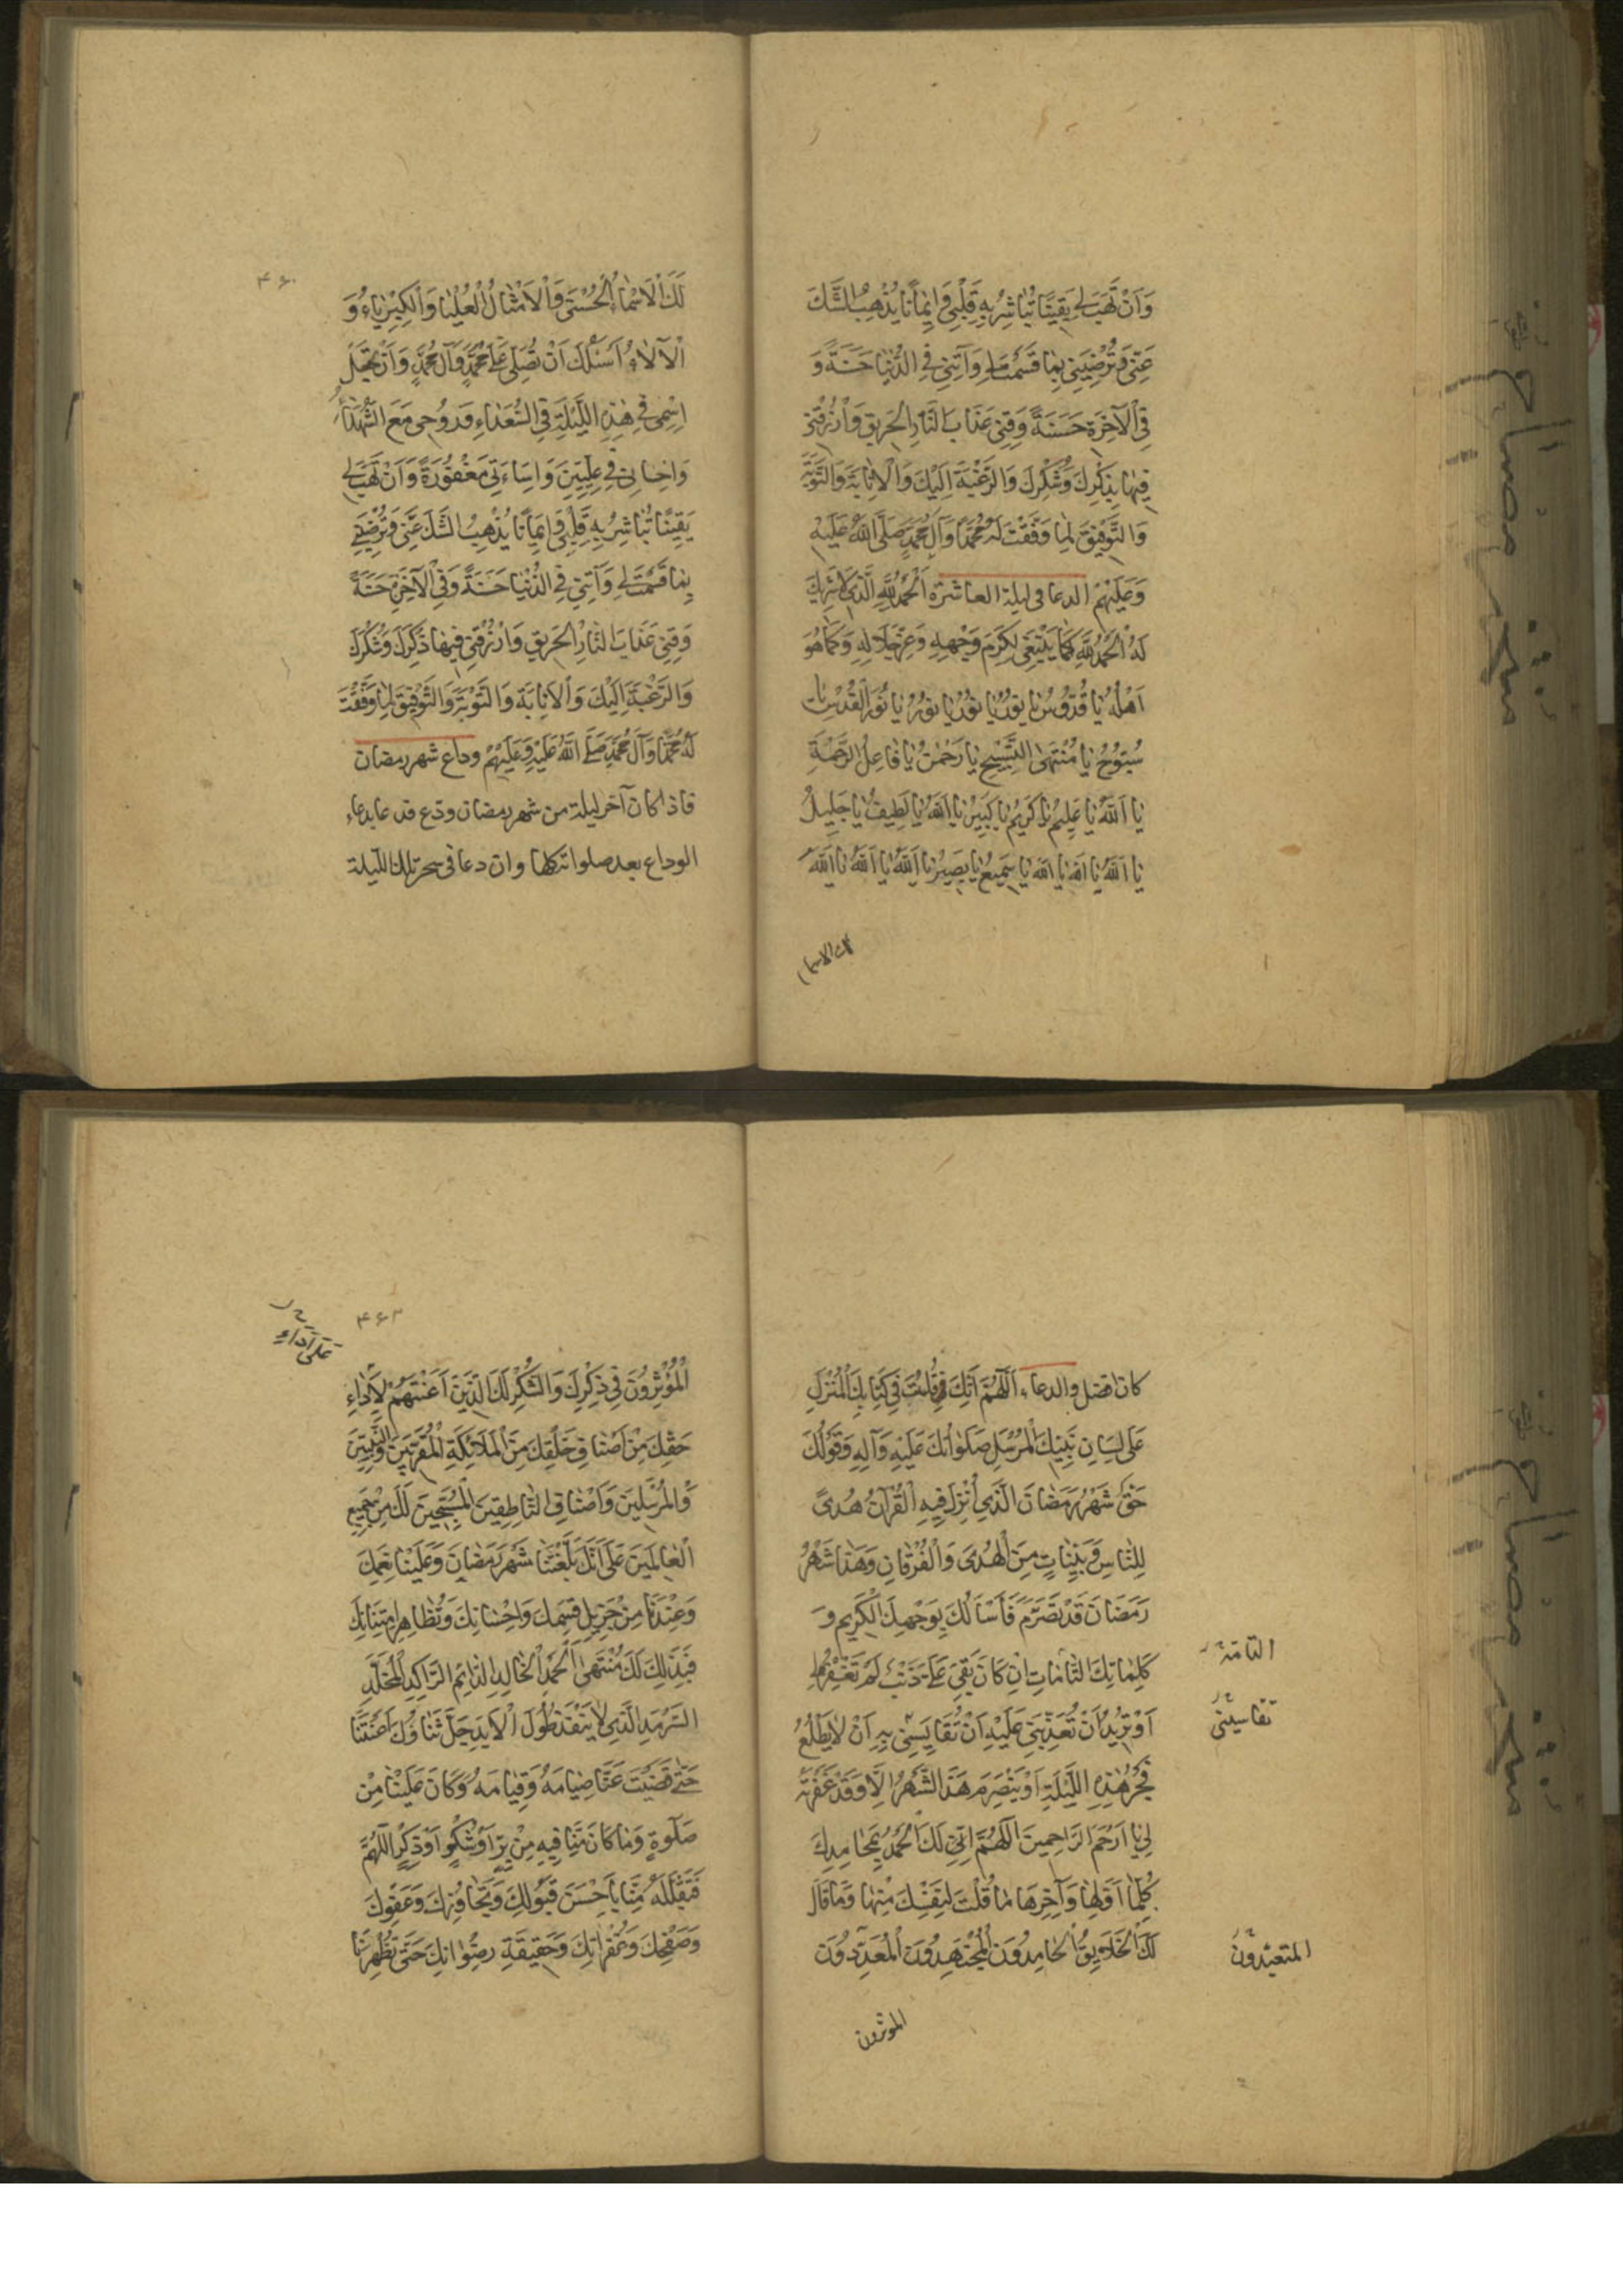 وَاَنْ تَهَبَ لِی يَقِينًا تُبَاشِرُ بِهِ قَلْبِي وَاِيمَانًا يُذْهِبُ الشَّكَ
عَنِّي وَتُرْضِيَنِي بِمَا قَسَمْتَ لِی وَآتِنِي فِي الدُّنْيَا حَسَنَةً وَ
فِي الْآخِرَةِ حَسَنَةً وَقِنِي عَذَابَ النَّارِ الْحَرِيقِ وَارْزُقْنِي
فِيهَا ذِكْرَكَ وَشُكْرَكَ وَالرَّغْبَةَ اِلَيْكَ وَالْاِنَابَةَ وَالتَّوْبَةَ
وَالتَّوْفِيقَ لِمَا وَفَّقْتَ لَهُ مُحَمَّدًا وَآلَ مُحَمَّدٍ صَلَّى اللَّهُ عَلَيْهِ
وَعَلَيْهِمْ الدعا فی لیلة العاشرة اَلْحَمْدُ لِلَّهِ الَّذِي لَا شَرِيكَ
لَهُ الْحَمْدُ لِلَّهِ كَمَا يَنْبَغِي لِكَرَمِ وَجْهِهِ وَعِزِّ جَلَالِهِ وَكَمَا هُوَ
اَهْلُهُ يَا قُدُّوسُ يَا نُورُ يَا نُورُ يَا نُورُ يَا نُورَ الْقُدْسِ يَا
سُبُّوحُ يَا مُنْتَهَى التَّسْبِيحِ يَا رَحْمٰنُ يَا فَاعِلَ الرَّحْمَةِ
يَا اَللَّهُ يَا عَلِيمُ يَا كَرِيمُ يَا كَبِيرُ يَا اَللَّهُ يَا لَطِيفُ يَا جَلِيلُ
يَا اَللَّهُ يَا اَللَّهُ يَا اللَّه يَا سَمِيعُ يَا بَصِيرُ يَا اَللَّهُ يَا اَللَّهُ يَا اَللَّهُ
لك الاسما
۴۶۰
لَكَ الْاَسْمَاءُ الْحُسْنَى وَالْاَمْثَالُ الْعُلْيَا وَالْكِبْرِيَاءُ وَ
الْآلَاءُ اَسْئَلُكَ اَنْ تُصَلِّيَ عَلَى مُحَمَّدٍ وَآلِ مُحَمَّدٍ وَاَنْ تَجْعَلَ
اِسْمِي فِي هٰذِهِ اللَّيْلَةِ فِي السُّعَدَاءِ وَرُوحِي مَعَ الشُّهَدَاءِ
وَاِحْسَانِي فِي عِلِّيِّينَ وَاِسَاءَتِي مَغْفُورَةً وَاَنْ تَهَبَ لِی
يَقِينًا تُبَاشِرُ بِهِ قَلْبِي وَاِيمَانًا يُذْهِبُ الشَّكَ عَنِّي وَتُرْضِيَنِي
بِمَا قَسَمْتَ لِی وَآتِنِي فِي الدُّنْيَا حَسَنَةً وَفِي الْآخِرَةِ حَسَنَةً
وَقِنِي عَذَابَ النَّارِ الْحَرِيقِ وَارْزُقْنِي فِيهَا ذِكْرَكَ وَشُكْرَكَ
وَالرَّغْبَةَ اِلَيْكَ وَالْاَنِابَةَ وَالتَّوْبَةَ وَالتَّوْفِيقَ لِمَا وَفَّقْتَ
لَهُ مُحَمَّدًا وَآلَ مُحَمَّدٍ صَلَّى اللَّهُ عَلَيْهِ وَعَلَيْهِمْ وداع شهر رمضان
فاذا كان آخر لیلة من شهر رمضان ودع فدعا بدعاء
الوداع بعد صلواته كلها وان دعا فی سحر تلك اللّیلة
كان افضل والدعاء اَللّٰهُمَّ اِنَّكَ قُلْتَ فِي كِتَابِكَ الْمُنْزَلِ
عَلَى لِسَانِ نَبِيِّكَ الْمُرْسَلِ صَلَوَاتُكَ عَلَيْهِ وَآلِهِ وَقَوْلُكَ
حَقٌّ شَهْرُ رَمَضَانَ الَّذِي اُنْزِلَ فِيهِ الْقُرْآنُ هُدًى
لِلنَّاسِ وَبَيِّنَاتٍ مِنَ الْهُدَى وَالْفُرْقَانِ وَهٰذَا شَهْرُ
رَمَضَانَ قَدْ تَصَرَّمَ فَاَسْاَلُكَ بِوَجْهِكَ الْكَرِيمِ وَ
كَلِمَاتِكَ التَّامَّاتِ اِنْ كَانَ بَقِيَ عَلَيَّ ذَنْبٌ لَمْ تَغْفِرْهُ لِي
التامّة
اَوْ تُرِيدُ اَنْ تُعَذِّبَنِي عَلَيْهِ اَنْ تُقَايِسَنِي بِهِ اَنْ لَا يَطْلُعَ
تقاسینی
فَجْرُ هٰذِهِ اللَّيْلَةِ اَوْ يَنْصَرِمَ هَذَا الشَّهْرُ اِلَّا وَقَدْ غَفَرْتَهُ
لِي يَا اَرْحَمَ الرَّاحِمِينَ اَللّٰهُمَّ اِنِّي لَكَ الْحَمْدُ بِمَحَامِدِكَ
كُلِّهَا اَوَّلِهَا وَآخِرِهَا مَا قُلْتَ لِنَفْسِكَ مِنْهَا وَمَا قَالَ
لَكَ الْخَلَايِقُ الْحَامِدُونَ الْمُجْتَهِدُونَ الْمُعَدِّدُونَ
المتعبّدون
الموثرون
۴۶۳
عَلَى اَدَاءِ
الْمُؤْثِرُونَ فِي ذِكْرِكَ وَالشُّكْرِ لَكَ الَّذِينَ اَعَنْتَهُمْ لِاَدَاءِ
حَقِّكَ مِنْ اَصْنَافِ خَلْقِكَ مِنَ الْمَلَائِكَةِ الْمُقَرَّبِينَ وَالنَّبِيِّينَ
وَالْمُرْسَلِينَ وَاَصْنَافِ النَّاطِقِينَ الْمُسَبِّحِينَ لَكَ مِنْ جَمِيعِ
الْعَالَمِينَ عَلَى اَنَّكَ بَلَّغْتَنَا شَهْرَ رَمَضَانَ وَعَلَيْنَا نِعَمِكَ
وَعِنْدَنَا مِنْ جَزِيلِ قِسَمِكَ وَاِحْسَانِكَ وَتَظَاهِرِ امْتِنَانِكَ
فَبِذَلِكَ لَكَ مُنْتَهَى الْحَمْدِ الْخَالِدِ الدَّائِمِ الرَّاكِدِ الْمُخَلَّدِ
السَّرْمَدِ الَّذِي لَا يَنْفَدُ طُولَ الْاَبَدِ جَلَّ ثَنَاؤُكَ اَعَنْتَنَا
حَتَّى قَضَيْتَ عَنَّا صِيَامَهُ وَقِيَامَهُ وَكَانَ عَلَيْنَا مِنْ
صَلٰوةٍ وَمَا كَانَ مِنَّا فِيهِ مِنْ بِرٍّ اَوْ شُكْرٍ اَوْ ذِكْرٍ اَللّٰهُمَّ
فَتَقَبَّلْهُ مِنَّا بِاَحْسَنِ قَبُولِكَ وَتَجَاوُزِكَ وَعَفْوِكَ
وَصَفْحِكَ وَغُفْرَانِكَ وَحَقِيقَةِ رِضْوَانِكَ حَتَّى تُظْهِرَنَا